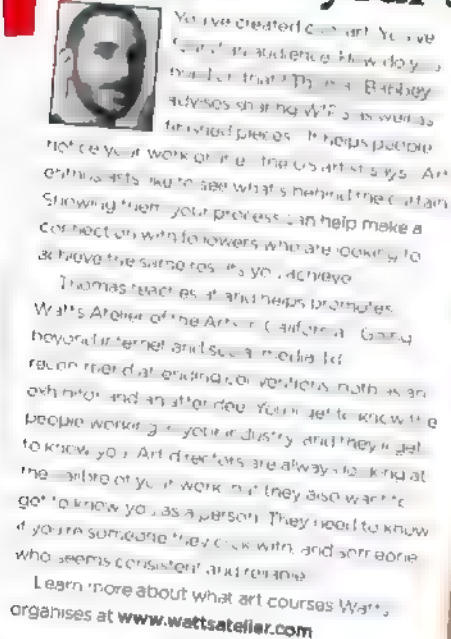 your
You've created cool art. You've
an audience. How do you
that? Thomas Babbey
advises sharing WIPs as well as
finished pieces. "It helps people
notice your work online," the US artist says. "Art
enthusiasts like to see what's behind the curtain.
Showing them your process can help make a
connection with followers who are looking to
achieve the same results you achieve."
Thomas teaches at and helps promotes
Watts Atelier of the Arts in California. "Going
beyond internet and social media, I'd
recommend attending conventions, both as an
exhibitor and an attendee. You'll get to know the
people working in your industry, and they'll get
to know you. Art directors are always looking at
the calibre of your work, but they also want to
get to know you as a person. They need to know
if you're someone they click with, and someone
who seems consistent and reliable."
Learn more about what art courses Watts
organises at www.wattsatelier.com